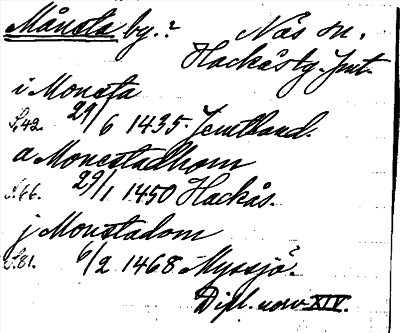 Månsta by.? Näs sn.
Hackås tg. Jmt.
i Monsta
S. 42. 29/6 1435. Jemtland.
a Monestadhom
N. 66. 29/1 1450 Hackås.
j Monstadom
S. 81. 6/2 1468 Myssjö.
Dipl. norv XIV.